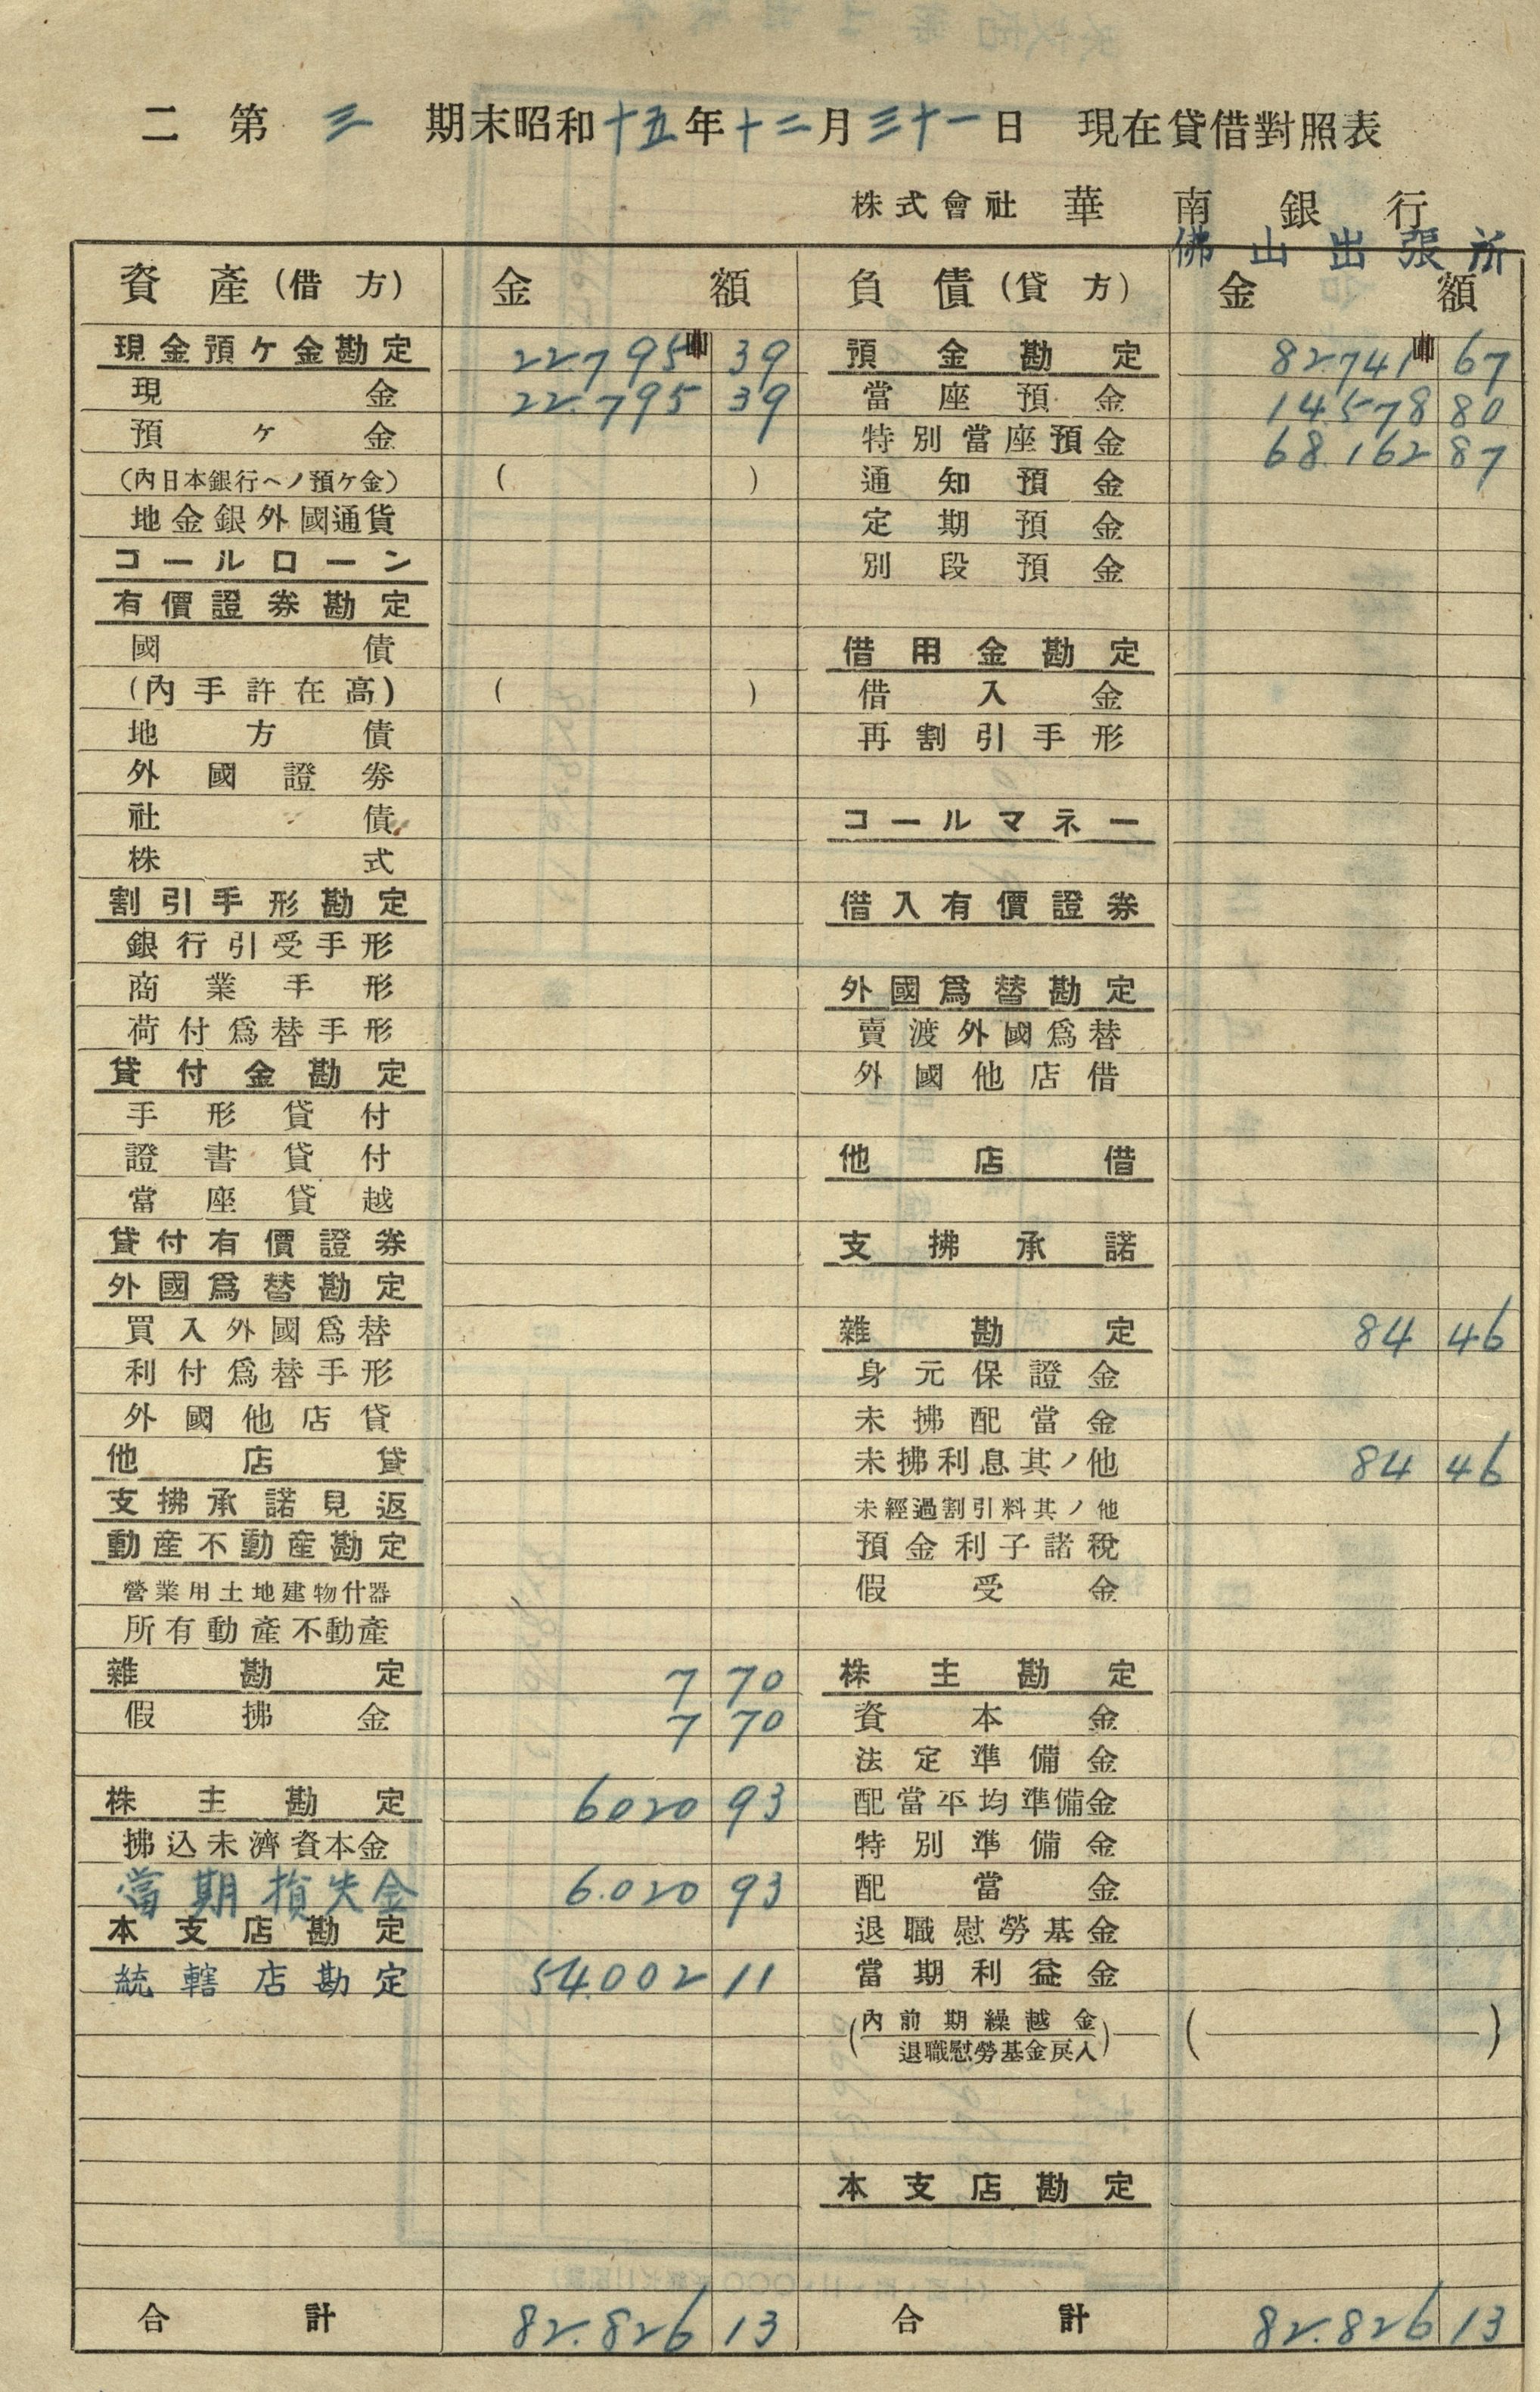 二 第 三 期末昭和十五年十二月三十一日 現在貸借對照表
株式會社 華南銀行
佛山出張所
資產(借方) 金額 負債(貸方) 金額
現金預ケ金勘定 22.795 39 預金勘定 82.741 67
現金 22.795 39 當座預金 14.578 80
預ケ金 特別當座預金 68.162 87
(內日本銀行ヘノ預ケ金) ( ) 通知預金
地金銀外國通貨 定期預金
コールローン 別段預金
有價證券勘定
國債 借用金勘定
(內手許在高) ( ) 借入金
地方債 再割引手形
外國證券
社債 コールマネー
株式
割引手形勘定 借入有價證券
銀行引受手形
商業手形 外國爲替勘定
荷付爲替手形 賣渡外國爲替
貸付金勘定 外國他店借
手形貸付
證書貸付 他店借
當座貸越
貸付有價證券 支拂承諾
外國爲替勘定
買入外國爲替 雜勘定 84 46
利付爲替手形 身元保證金
外國他店貸 未拂配當金
他店貸 未拂利息其ノ他 84 46
支拂承諾見返 未經過割引料其ノ他
動産不動産勘定 預金利子諸稅
營業用土地建物什器 假受金
所有動產不動產
雜勘定 7 70 株主勘定
假拂金 7 70 資本金
法定準備金
株主勘定 6020 93 配當平均準備金
拂込未濟資本金 特別準備金
當期損失金 6.020 93 配當金
本支店勘定 退職慰勞基金
統轄店勘定 54.002 11 當期利益金
(內前期繰越金 退職慰勞基金戾入) ( )
本支店勘定
合計 82.826 13 合計 82.826 13